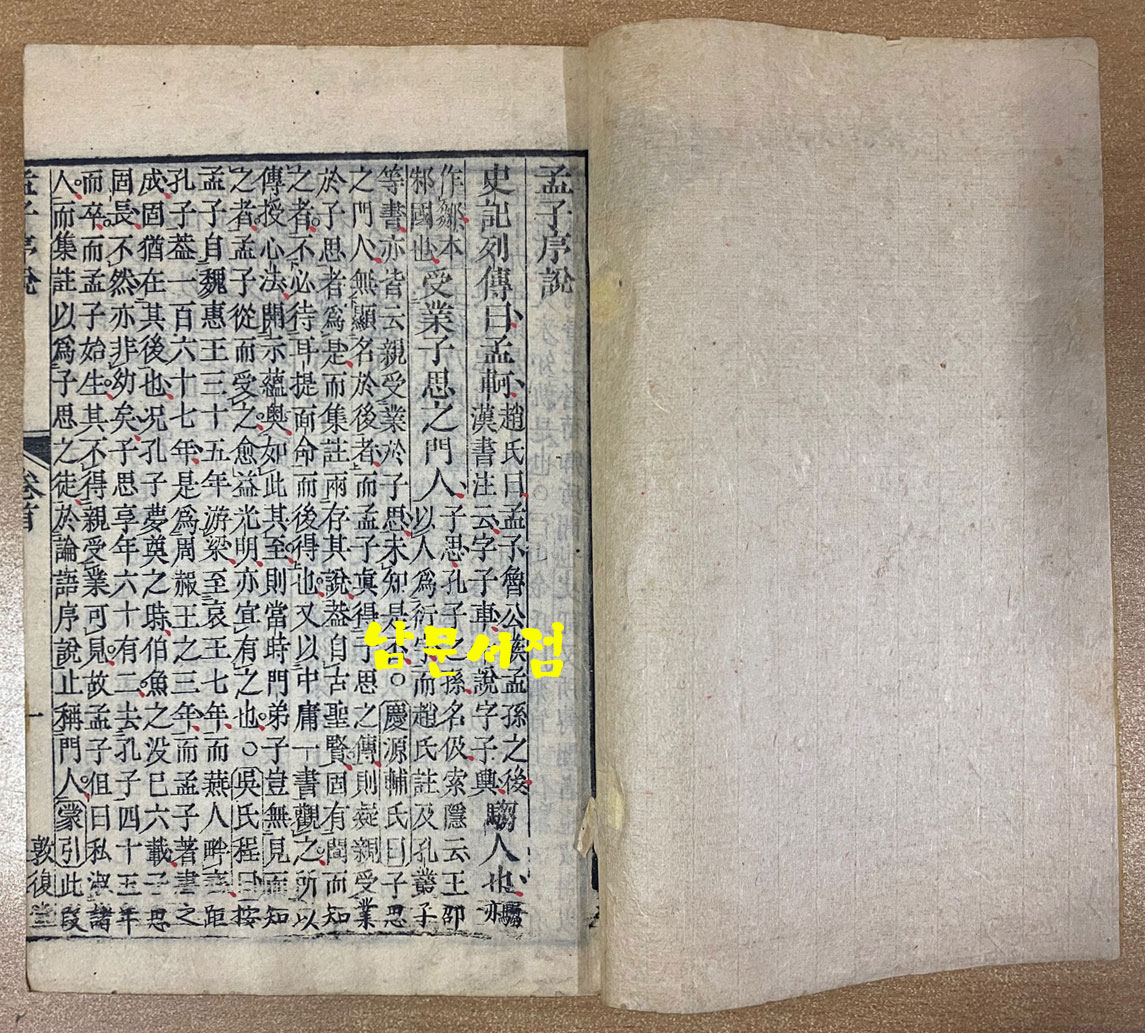 孟子序說
史記列傳曰孟軻趙氏曰孟子魯公族孟孫之後漢書注云字子車一說字子輿騶人也騶亦
作鄒本邾國也受業子思之門人子思孔子之孫名伋索隱云王卲以人為衍字而趙氏註及孔叢子
等書亦皆云親受業於子思未知是否○慶源輔氏曰子思
之門人無顯名於後者而孟子真得子思之傳則疑親受業
於子思者為是而集註兩存其說葢自古聖賢固有聞而知
之者不必待耳提面命而後得也又以中庸一書觀之所以
傳授心法開示蘊奧如此其至則當時門弟子豈無見而知
之者孟子從而受之愈益光明亦宜有之也○吳氏程曰按
孟子自魏惠王三十五年游梁至哀王七年而燕人畔齊距
孔子葢一百六十七年是為周赧王之三年而孟子著書之
成固猶在其後也况孔子夢奠之時伯魚之没已六載子思
固長不然亦非幼矣子思享年六十有二去孔子四十五年
而卒而孟子始生其不得親受業可見故孟子但曰私淑諸
人而集註以為子思之徒於論語序說止稱門人蒙引此段
孟子序說
卷首
一
敦復堂
남문서점